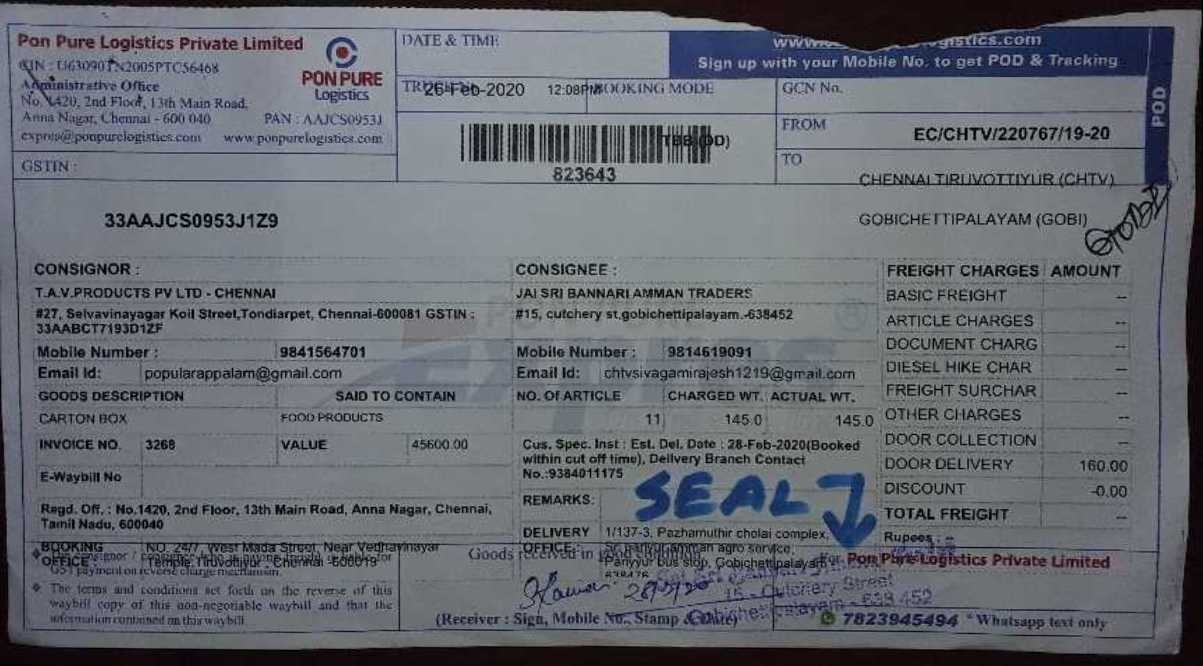 Pon Pure Logistics Private Limited
CIN : U63090TN2005PTC56468
Administrative Office
No. 1420, 2nd Floor, 13th Main Road,
Anna Nagar, Chennai - 600 040
PAN : AAJCS0953J
www.ponpurelogistics.com
PON PURE
Logistics
GSTIN :
33AAJCS0953J1Z9
DATE & TIME
26-Feb-2020 12:08PM
BOOKING MODE
823643
Sign up with your Mobile No. to get POD & Tracking
GCN No.
FROM
EC/CHTV/220767/19-20
TO
CHENNAI TIRUVOTTIYUR (CHTV)
GOBICHETTIPALAYAM (GOBI)
POD
CONSIGNOR :
T.A.V.PRODUCTS PV LTD - CHENNAI
#27, Selvavinayagar Koil Street,Tondiarpet, Chennai-600081 GSTIN :
33AABCT7193D1ZF
Mobile Number : 9841564701
Email Id: popularappalam@gmail.com
GOODS DESCRIPTION SAID TO CONTAIN
CARTON BOX FOOD PRODUCTS
INVOICE NO. 3268 VALUE 45600.00
E-Waybill No
Regd. Off. : No.1420, 2nd Floor, 13th Main Road, Anna Nagar, Chennai,
Tamil Nadu, 600040
BOOKING OFFICE : NO. 24/7 West Mada Street, Near Vedhavinayar
Temple,Tiruvottiyur, Chennai -600019
GST payment on reverse charge mechanism.
The terms and conditions set forth on the reverse of this
waybill copy of this non-negotiable waybill and that the
information contained on this waybill
CONSIGNEE :
JAI SRI BANNARI AMMAN TRADERS
#15, cutchery st,gobichettipalayam.-638452
Mobile Number : 9814619091
Email Id: chtvsivagamirajesh1219@gmail.com
NO. Of ARTICLE CHARGED WT. ACTUAL WT.
11 145.0 145.0
Cus. Spec. Inst : Est. Del. Date : 28-Feb-2020(Booked
within cut off time), Delivery Branch Contact
No.:9384011175
REMARKS:
SEAL
DELIVERY OFFICE : 1/137-3, Pazhamuthir cholai complex,
Pariyyur bus stop, Gobichettipalayam
Goods received in good condition
28/2/20
15 - Cutchery Street
Gobichettipalayam - 638 452
(Receiver : Sign, Mobile No., Stamp & Date)
FREIGHT CHARGES AMOUNT
BASIC FREIGHT --
ARTICLE CHARGES --
DOCUMENT CHARG --
DIESEL HIKE CHAR --
FREIGHT SURCHAR --
OTHER CHARGES --
DOOR COLLECTION --
DOOR DELIVERY 160.00
DISCOUNT -0.00
TOTAL FREIGHT --
Rupees :
For Pon Pure Logistics Private Limited
7823945494 *Whatsapp text only